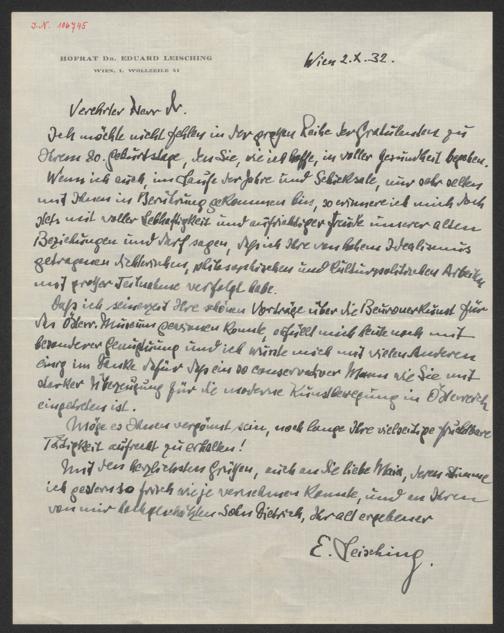 J.N. 106745
HOFRAT DR. EDUARD LEISCHING
WIEN, I. WOLLZEILE
Wien 2.X.32.
Verehrter Herr Dr.
Ich möchte nicht fehlen in der großen Reihe der Gratulanten zu
Ihrem 80. Geburtstage, den Sie, wie ich hoffe, in voller Gesundheit begehen.
Wenn ich auch, im Laufe der Jahre und Schicksale, nur sehr selten
mit Ihnen in Berührung gekommen bin, so erinnere ich mich doch
stets mit voller Lebhaftigkeit und aufrichtiger Freude unserer alten
Beziehungen und darf sagen, daß ich Ihre von hohem Idealismus
getragenen dichterischen, philosophischen und kulturpolitischen Arbeiten
mit großer Teilnahme verfolgt habe.
Daß ich seinerzeit Ihre schönen Vorträge über die Beuronerkunst für
das Österr. Museum gewinnen konnte, erfüllt mich heute noch mit
besonderer Genugtuung und ich würde mich mit vielen Anderen
einig im Danke dafür daß ein so conservativer Mann wie Sie mit
starker Überzeugung für die moderne Kunstbewegung in Österreich
eingetreten ist.
Möge es Ihnen vergönnt sein, noch lange Ihre vielseitige fruchtbare
Tätigkeit aufrecht zu erhalten!
Mit den herzlichsten Grüßen, auch an die liebe Maria, deren Stimme
ich gestern so frisch wie je vernehmen konnte, und an Ihren
von mir hochgeschätzten Sohn Dietrich, Ihr alt ergebener
E. Leisching.